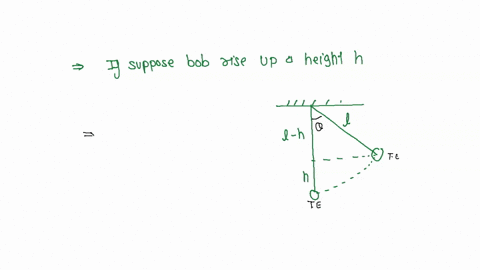 ⇒ If suppose bob rise up a height h
θ
l
l-h
⇒
h
TE